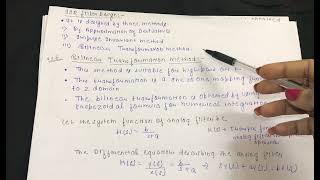 IIR filter design:-
It is designed by three methods
i) By Approximation of Derivatives
ii) Impulse Invariance method
iii) Bilinear Transformation method.
Bilinear Transformation method:-
This method is suitable for highpass
The transformation is a one to one mapping from
to Z domain
The bilinear transformation is obtained by using
trapezoidal formula for numerical integration
Let the system function of analog filter be
H(s) = b/s+a
The Differential equation describing the analog filter
H(s) = Y(s)/X(s) = b/s+a ⇒ sY(s) + aY(s) = bX(s)